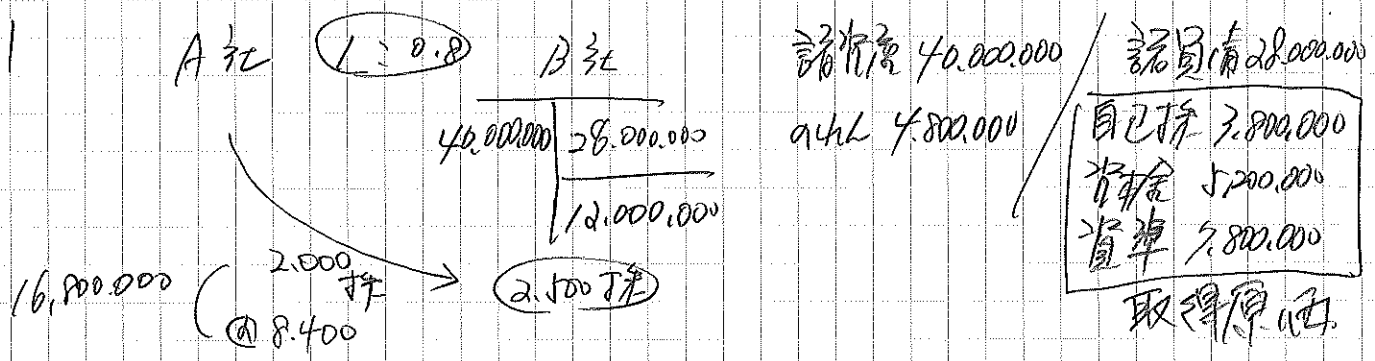 1
A社 1:0.8 B社
40,000,000 28,000,000
12,000,000
16,800,000
2,000株
@8,400
2,500株
諸資産 40,000,000 / 諸負債 28,000,000
のれん 4,800,000 自己株 3,800,000
資本金 5,200,000
資準 7,800,000
取得原価